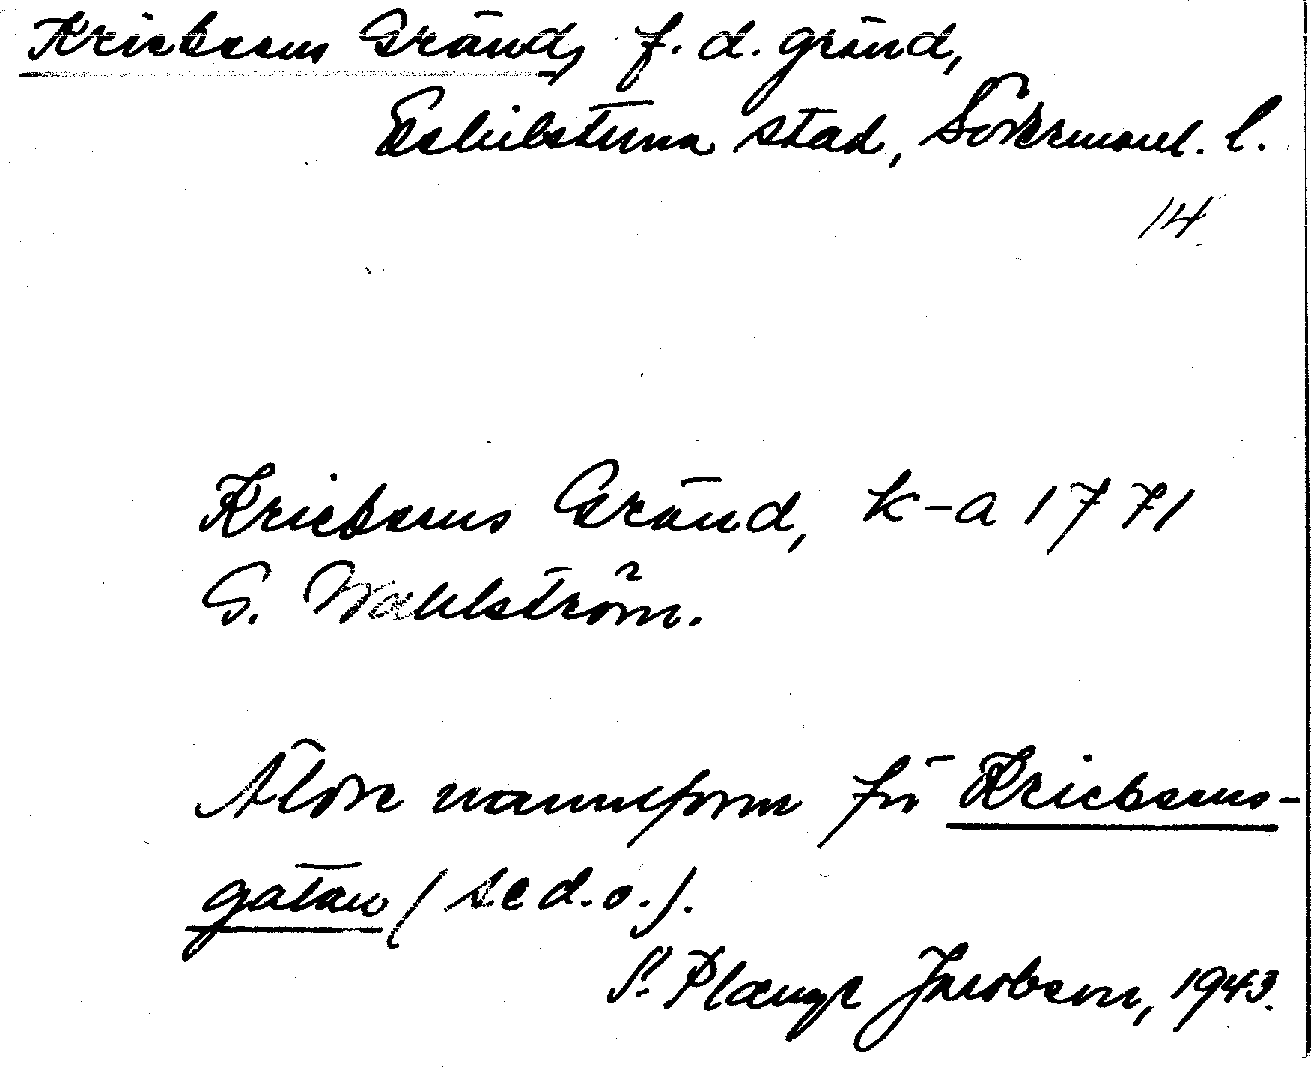 Kriebsens Gränd, f. d. gränd,
Eskilstuna stad, Södermanl. l.
14
Kriebsens Gränd, k-a 1771
G. Wahlström.
Äldre namnform för Kriebsens-
gatan (se d. o.).
S. Plænge Jacobson, 1943.